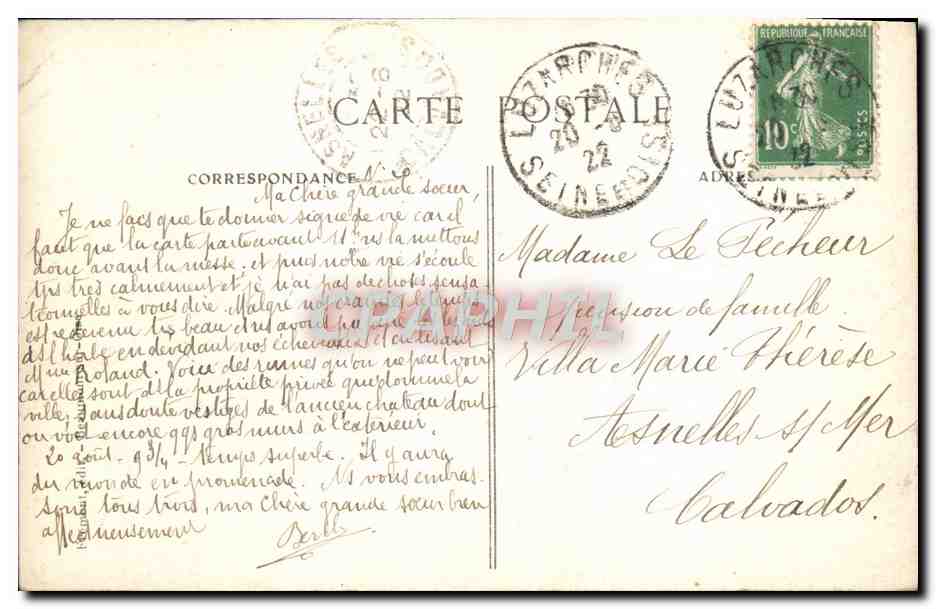 CARTE POSTALE
CORRESPONDANCE
ADRESSE
RÉPUBLIQUE FRANÇAISE
10c
POSTES
LUZARCHES
20 -8
22
SEINE ET OISE
LUZARCHES
30
22
SEINE ET OISE
ASNELLES
CALVADOS
Ma Chère grande sœur,
Je ne fais que te donner signe de vie car il
faut que la carte parte avant 11h ns la mettons
donc avant la messe. et puis notre vie s'écoule
trs très calmement et je n'ai pas de choses sensa
tionnelles à vous dire. Malgré nos craintes le temps
est redevenu très beau et ns avons pu
ds l'herbe en dévidant nos écheveaux et en disant
Mme Roland. Voici des ruines qu'on ne peut voir
car elles sont ds la propriété privée qui domine la
ville, sans doute vestiges de l'ancien château dont
on voit encore qqs gros murs à l'extérieur.
20 août - 9 3/4 - temps superbe. Il y aura
du monde en promenade. Ns vous embras-
sons tous trois, ma Chère grande sœur bien
affectueusement
Berthe
Madame Le Pecheur
pension de famille
Villa Marie Thérèse
Asnelles s/ Mer
Calvados.
CPAPHIL